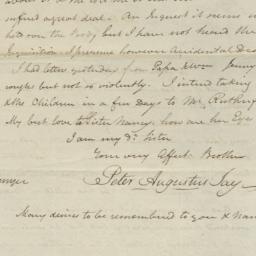 suffered a great deal. An Inquest it seems w
held over the Body but I have not heard the
Inquisition I presume however Accidental Dea
I had letters yesterday from Papa & Wm Jenny
coughs but not so violently. I intend taking
& the Children in a few days to Mr. Ruthe
My best love to Sister Nancy, how are her Eyes
I am my dr. Sister
Your very Affect. Brother
Peter Augustus Jay
Many desires to be remembered to you & Nan